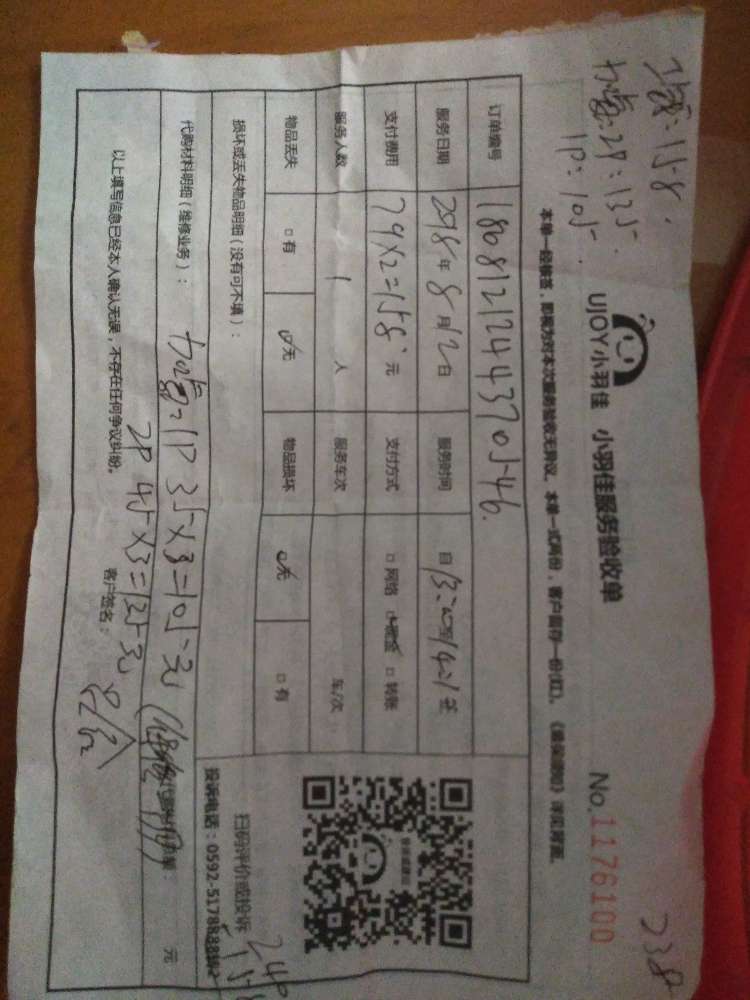 158.
加氟：2P：135.
1P：105.
238
UJOY小羽佳 小羽佳服务验收单 No.1176100
本单一经修签，即视为对本次服务验收无异议。本单一式两份，客户留存一份(红)。
订单编号 1808121244370546.
服务日期 2018年8月12日 服务时间 自13:20至14:1
支付费用 79×2=158.元 支付方式 □网络 □现金 □转账
服务人数 1 人 服务车次 车/次
物品丢失 □有 □无 物品损坏 □无 □有
损坏或丢失物品明细（没有可不填）：
代购材料明细（维修业务）： 加氟=1P 35×3=105元
2P 45×3=135元
元
以上填写信息已经本人确认无误，不存在任何争议纠纷。 客户签名：
扫码评价或投诉
投诉电话：0592-5178888转2
240